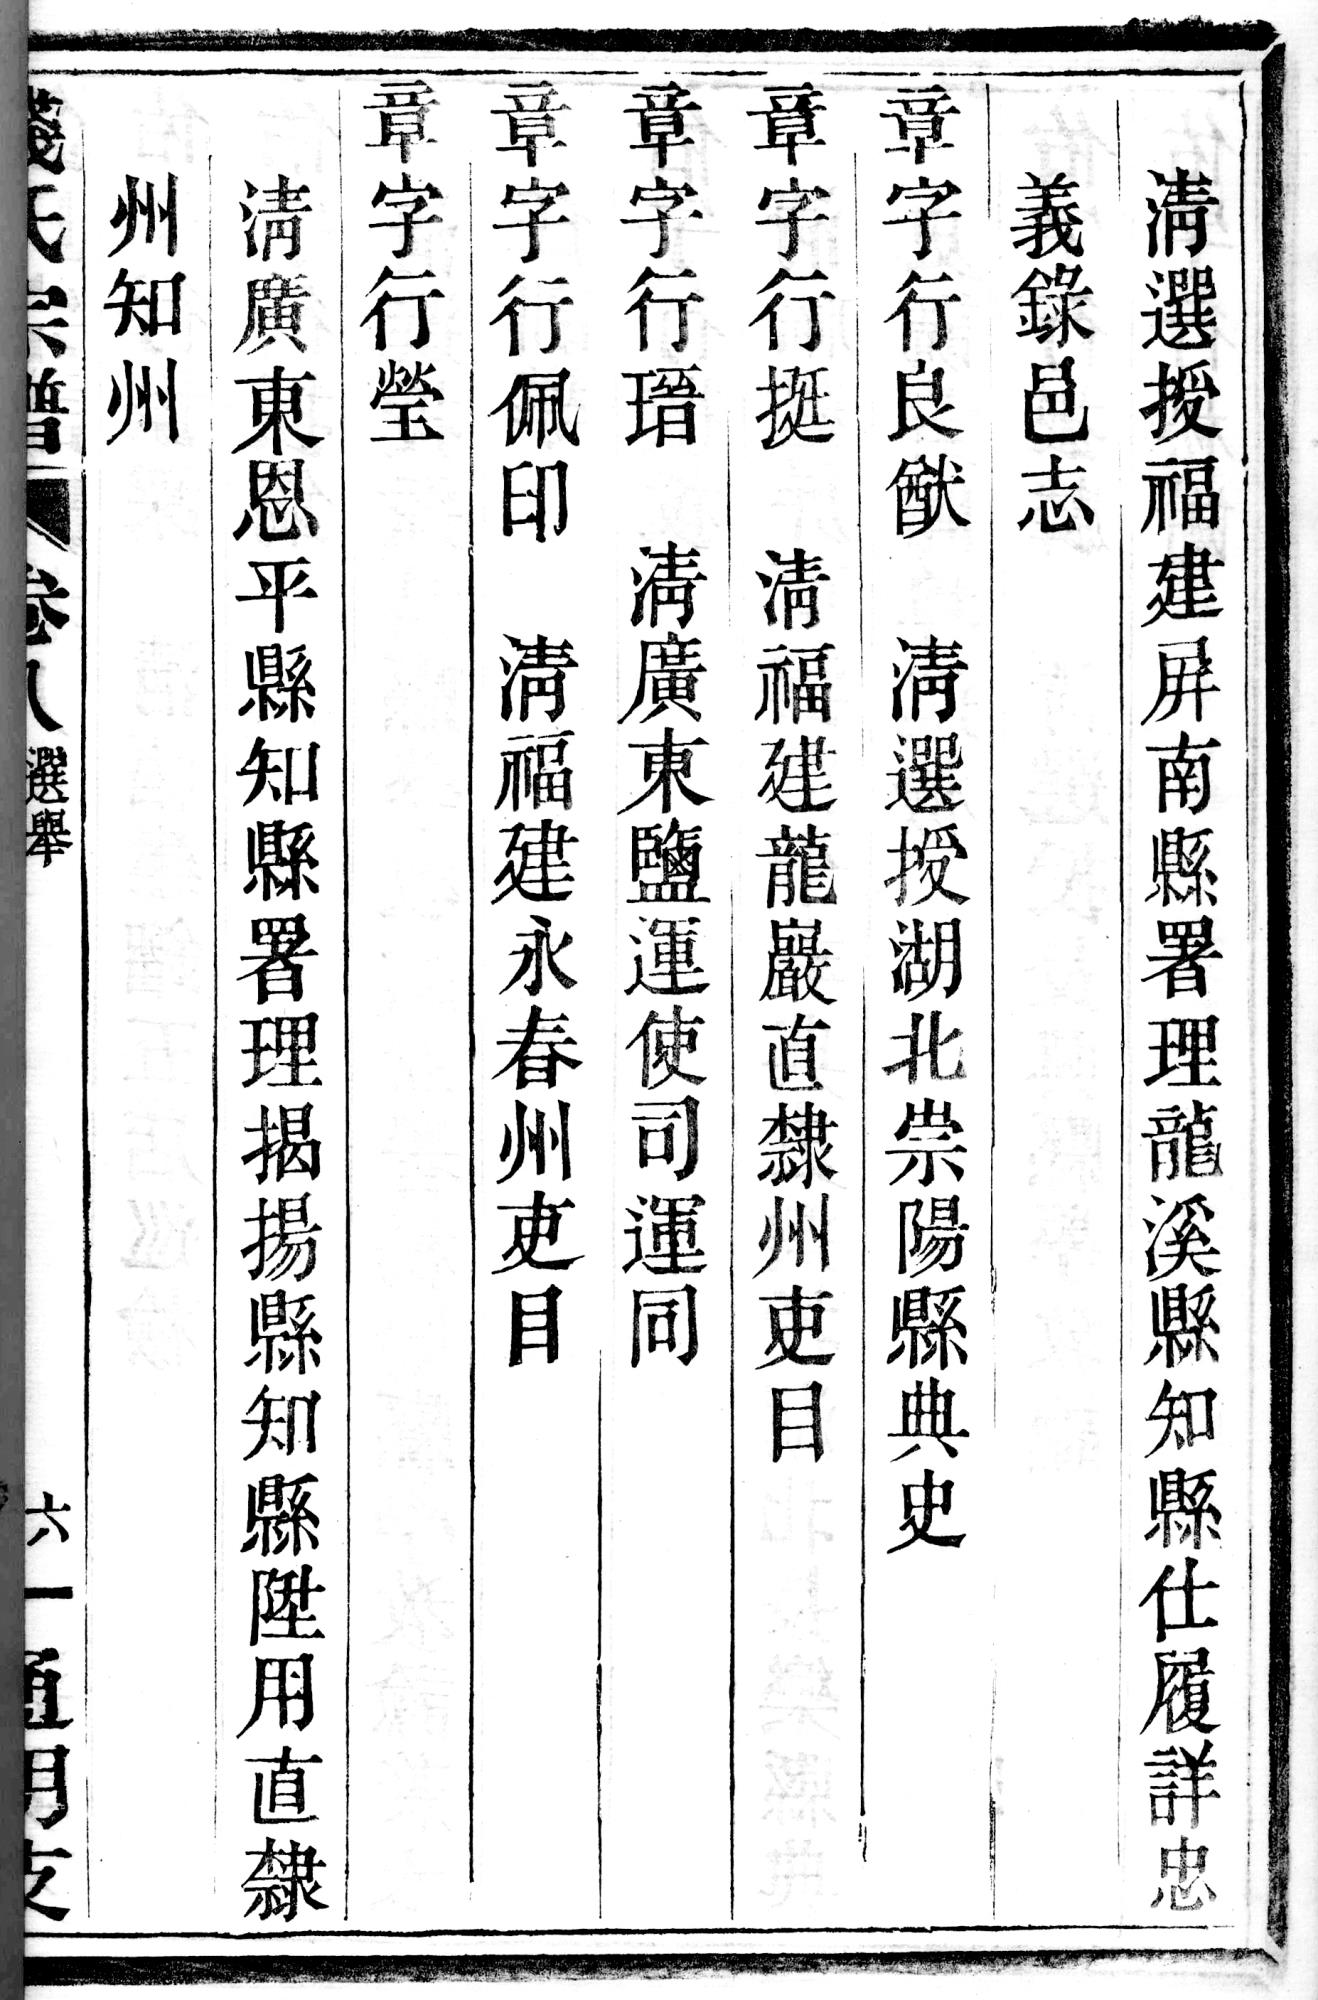 清選授福建屏南縣署理龍溪縣知縣仕履詳忠
義錄邑志
章字行良猷　清選授湖北崇陽縣典史
章字行挺　清福建龍巖直隸州吏目
章字行瑨　清廣東鹽運使司運同
章字行佩印　清福建永春州吏目
章字行瑩
清廣東恩平縣知縣署理揭揚縣知縣陞用直隸
州知州
錢氏宗譜　卷八　選舉　六一　通明支